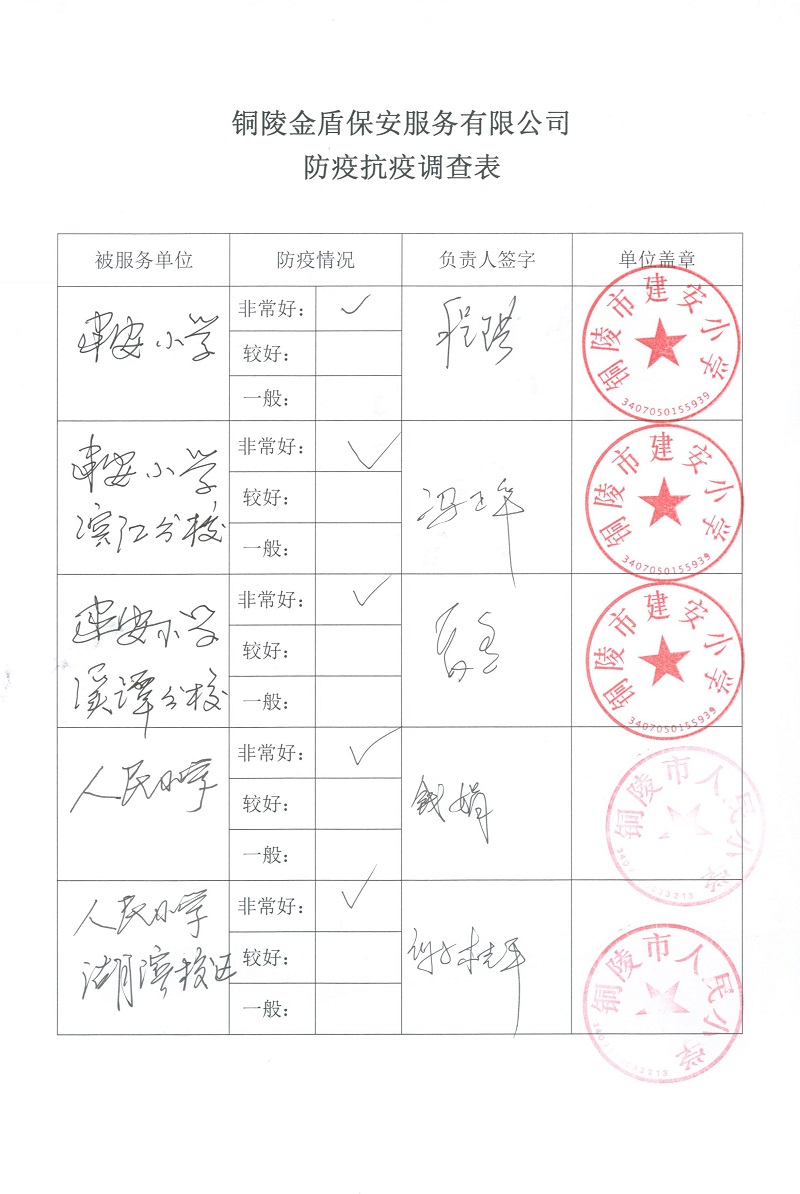 铜陵金盾保安服务有限公司
防疫抗疫调查表
被服务单位 防疫情况 负责人签字 单位盖章
建安小学
非常好：
较好：
一般：
铜陵市建安小学
3407050155939
建安小学
滨江分校
非常好：
较好：
一般：
铜陵市建安小学
3407050155939
建安小学
溪谭分校
非常好：
较好：
一般：
铜陵市建安小学
3407050155939
人民小学
非常好：
较好：
一般：
钱娟
铜陵市人民小学
人民小学
湖滨校区
非常好：
较好：
一般：
谢桂平
铜陵市人民小学